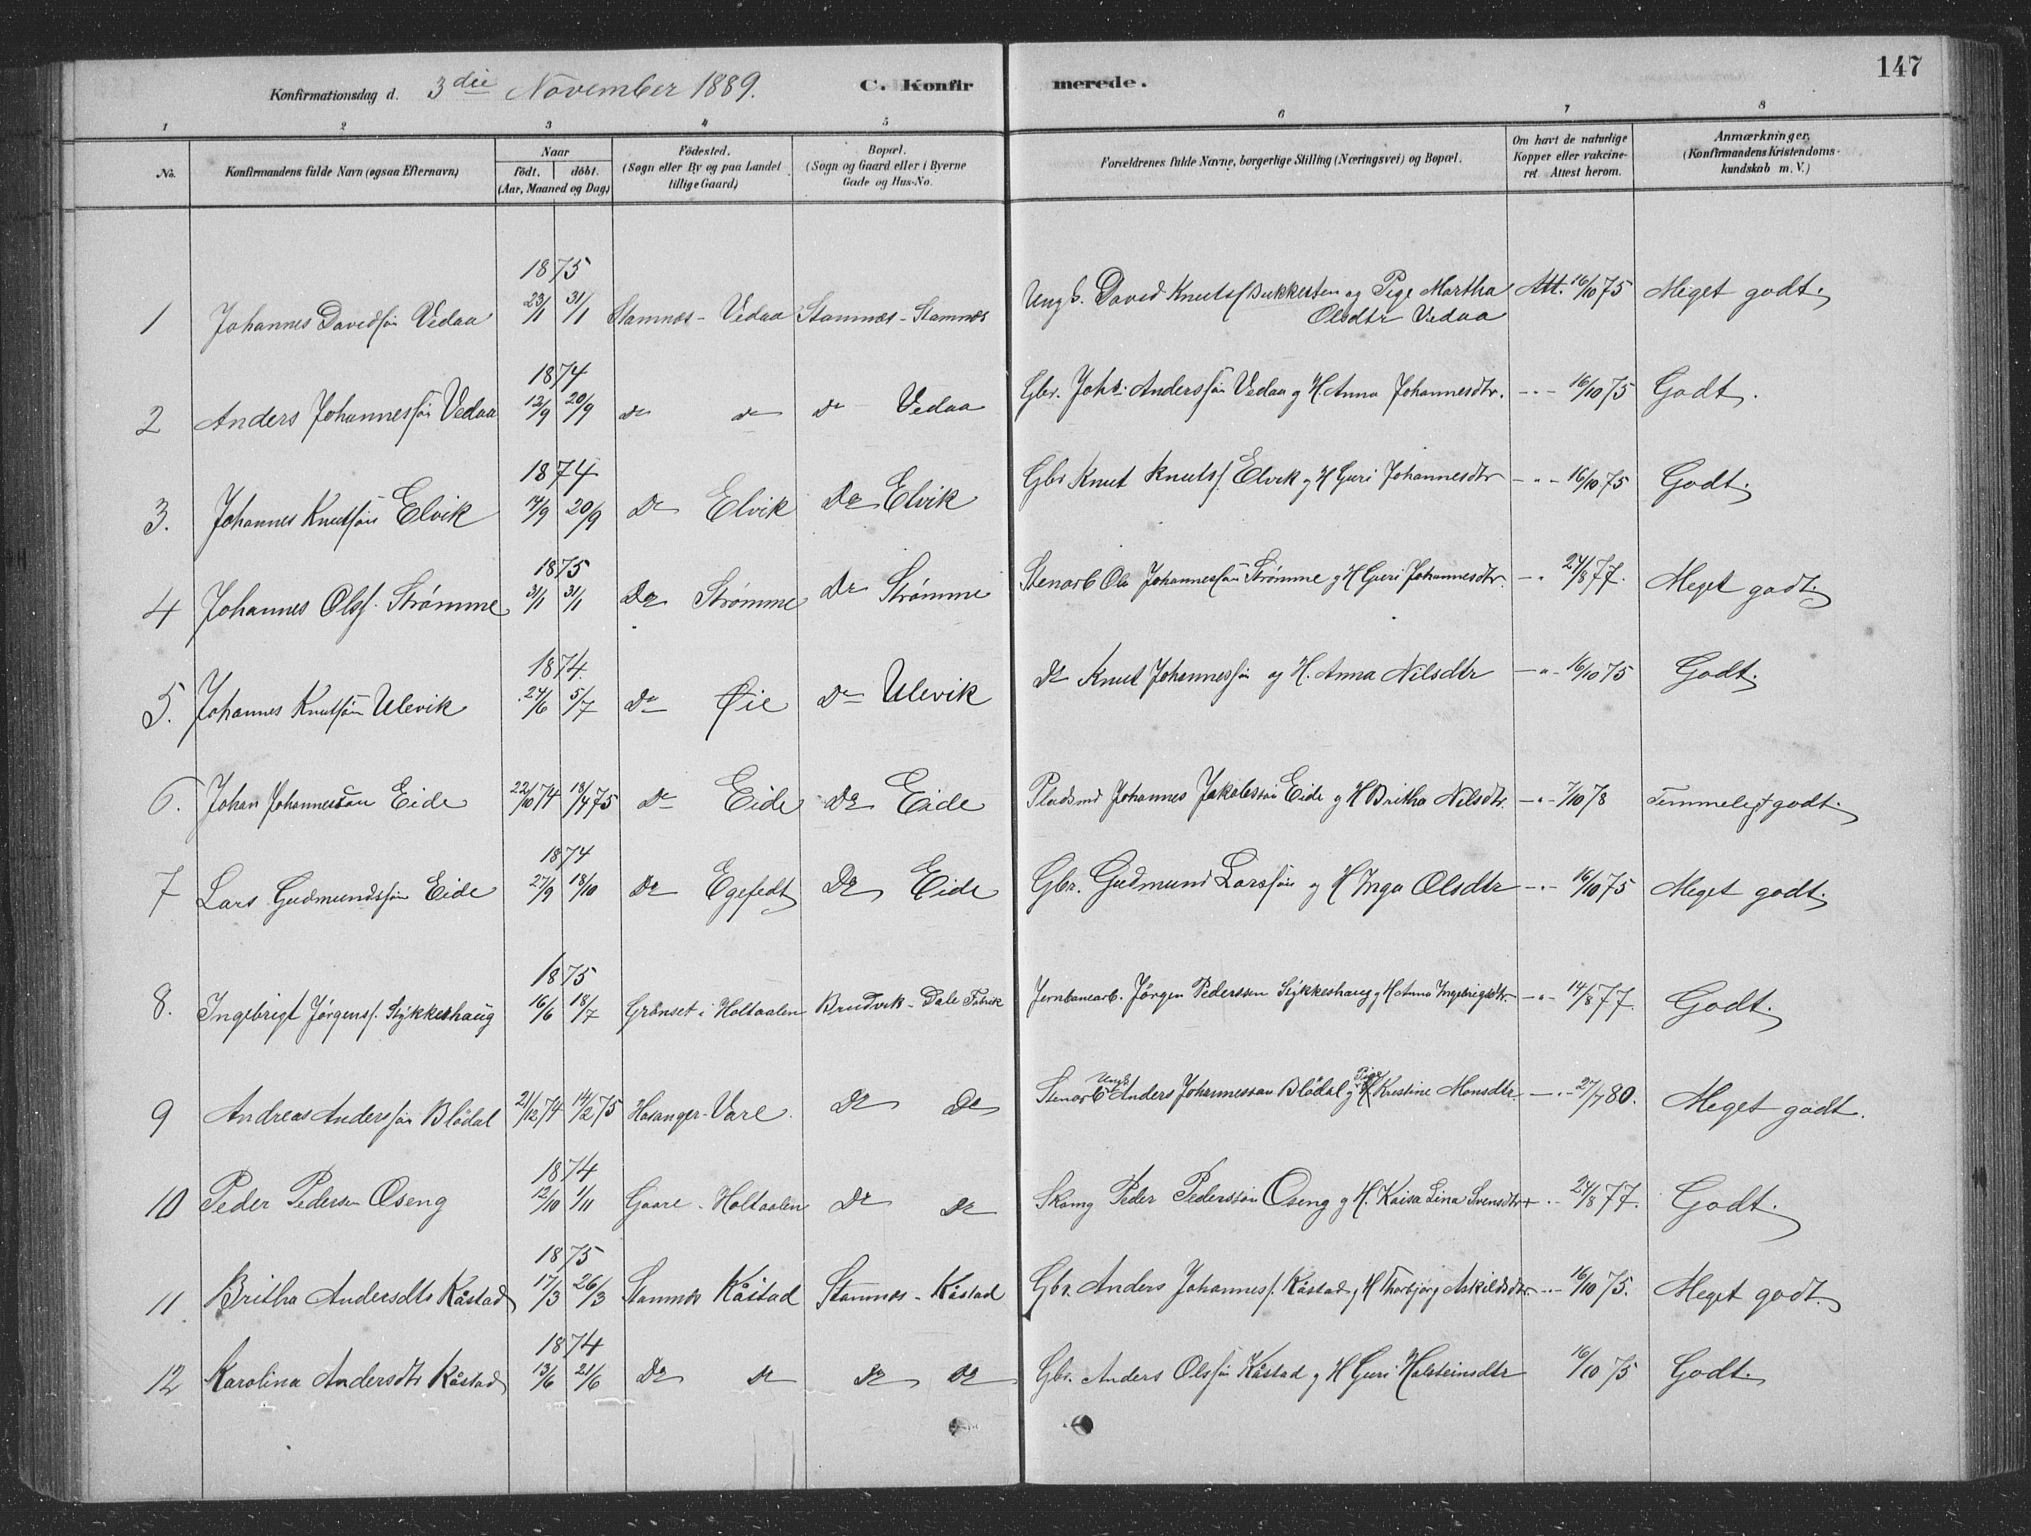 147
Konfirmationsdag d. 3die November 1889. C. Konfirmerede.
1 2 3 4 5 6 7 8
No. Konfirmandens fulde Navn (ogsaa Efternavn) Naar födt. döbt. (Aar, Maaned og Dag) Födested. (Sogn eller By og paa Landet tillige Gaard) Bopæl. (Sogn og Gaard eller i Byerne Gade og Hus-No. Forældrenes fulde Navne, borgerlige Stilling (Næringsvei) og Bopæl. Om havt de naturlige Kopper eller vakcineret. Attest herom. Anmærkninger. (Konfirmandens Kristendomskundskab m. V.)
1875
1 Johannes Davidsøn Vedaa 23/1 31/1 Stamnæs - Vedaa Stamnæs - Stamnæs Ung b. David Knuts. Bukkesten og Pige Martha Olsdtr Vedaa Att. 16/10 75 Meget godt.
1874
2 Anders Johannessøn Vedaa 12/9 20/9 do do do Vedaa Gbr. Johs. Anderssøn Vedaa og H. Anna Johannesdtr. -"- 16/10 75 Godt.
1874
3. Johannes Knutsøn Elvik 14/9 20/9 do Elvik do Elvik Gbr Knut Knuts. Elvik og H Guri Johannesdtr -"- 16/10 75 Godt.
1875
4 Johannes Olss. Strømme 3/1 31/1 do Strømme do Strømme Stenarb Ole Johannessøn Strømme og H Guri Johannesdtr. -"- 24/8 77. Meget godt
1874.
5. Johannes Knutsøn Ulevik 24/6 5/7 do Øie do Ulevik do Knut Johannessøn og H. Anna Nilsdtr -"- 16/10 75 Godt.
6. Johan Johannessøn Eide 22/10 74 18/4 75 do Eide do Eide Pladsmd Johannes Jakobssøn Eide og H Britha Nilsdtr. -"- 7/10 78 Temmeligt godt.
1874
7 Lars Gudmundssøn Eide 27/9 18/10 do Egefedt do Eide Gbr. Gudmund Larssøn og H Inga Olsdtr -"- 16/10 75 Meget godt.
1875
8. Ingebrigt Jørgens. Stykkeshaug 16/6 18/7 Grønset i Holtaalen Brudvik - Dale Fabrik Jernbanearb. Jørgen Pederssen Stykkeshaug og H Anna Ingebrigtsdtr. -"- 14/8 77. Godt.
9 Andreas Anderssøn Blødal 21/12 74 14/2 75 Hosanger - Vare do do Stenarb Ungk Anders Johannessøn Blødal og Pige Kristine Monsdtr. -"- 27/7 80. Meget godt.
1874
10 Peder Pedersen Oseng 12/10 1/11 Gaare - Holtaalen do do Peder Pederssøn Oseng og H. Kaisa Lina Svensdtr -"- 24/8 77. Godt.
1875
11 Britha Andersdtr Kåstad 17/3 26/3 Stamnæs Kåstad Stamnæs - Kåstad Gbr. Anders Johanness. Kåstad og H Thorbjørg Askildsdtr -"- 16/10 75. Meget godt.
1874
12 Karolina Andersdtr Kåstad 13/6 21/6 do do do do Gbr. Anders Olssøn Kåstad og H Guri Holsteinsdtr 16/10 75 Godt.